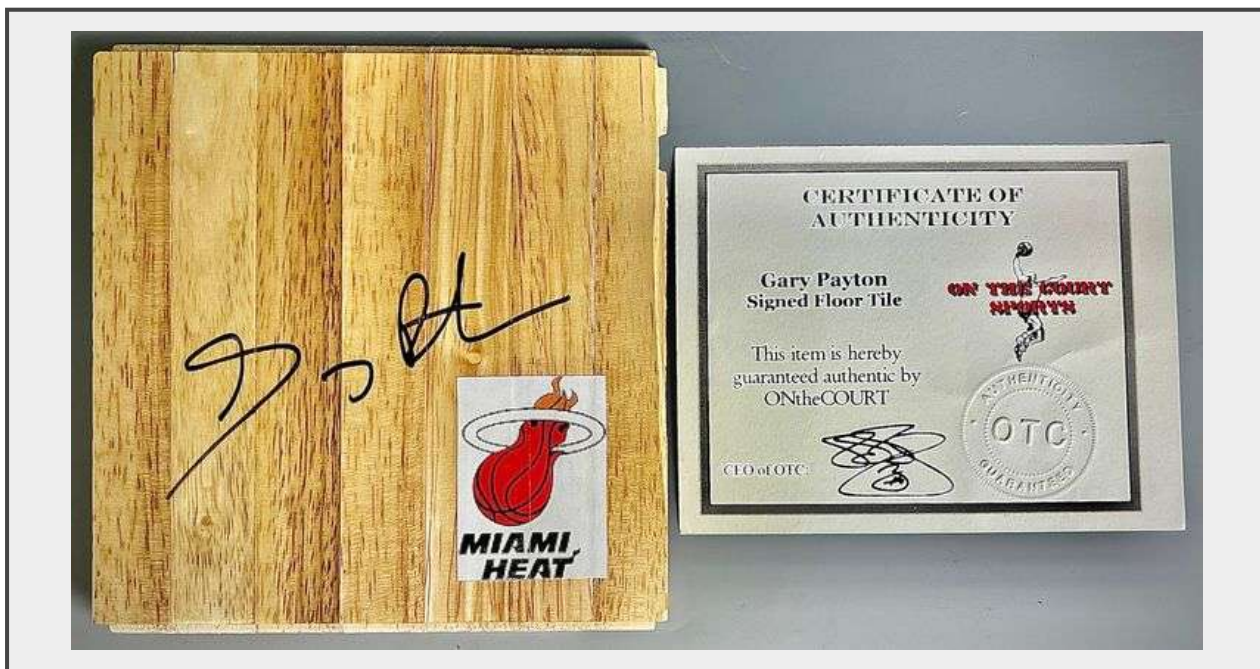 Gary Payton
MIAMI
HEAT
CERTIFICATE OF
AUTHENTICITY
Gary Payton
Signed Floor Tile
ON THE COURT
SPORTS
This item is hereby
guaranteed authentic by
ONtheCOURT
CEO of OTC:
AUTHENTICITY
OTC
GUARANTEED